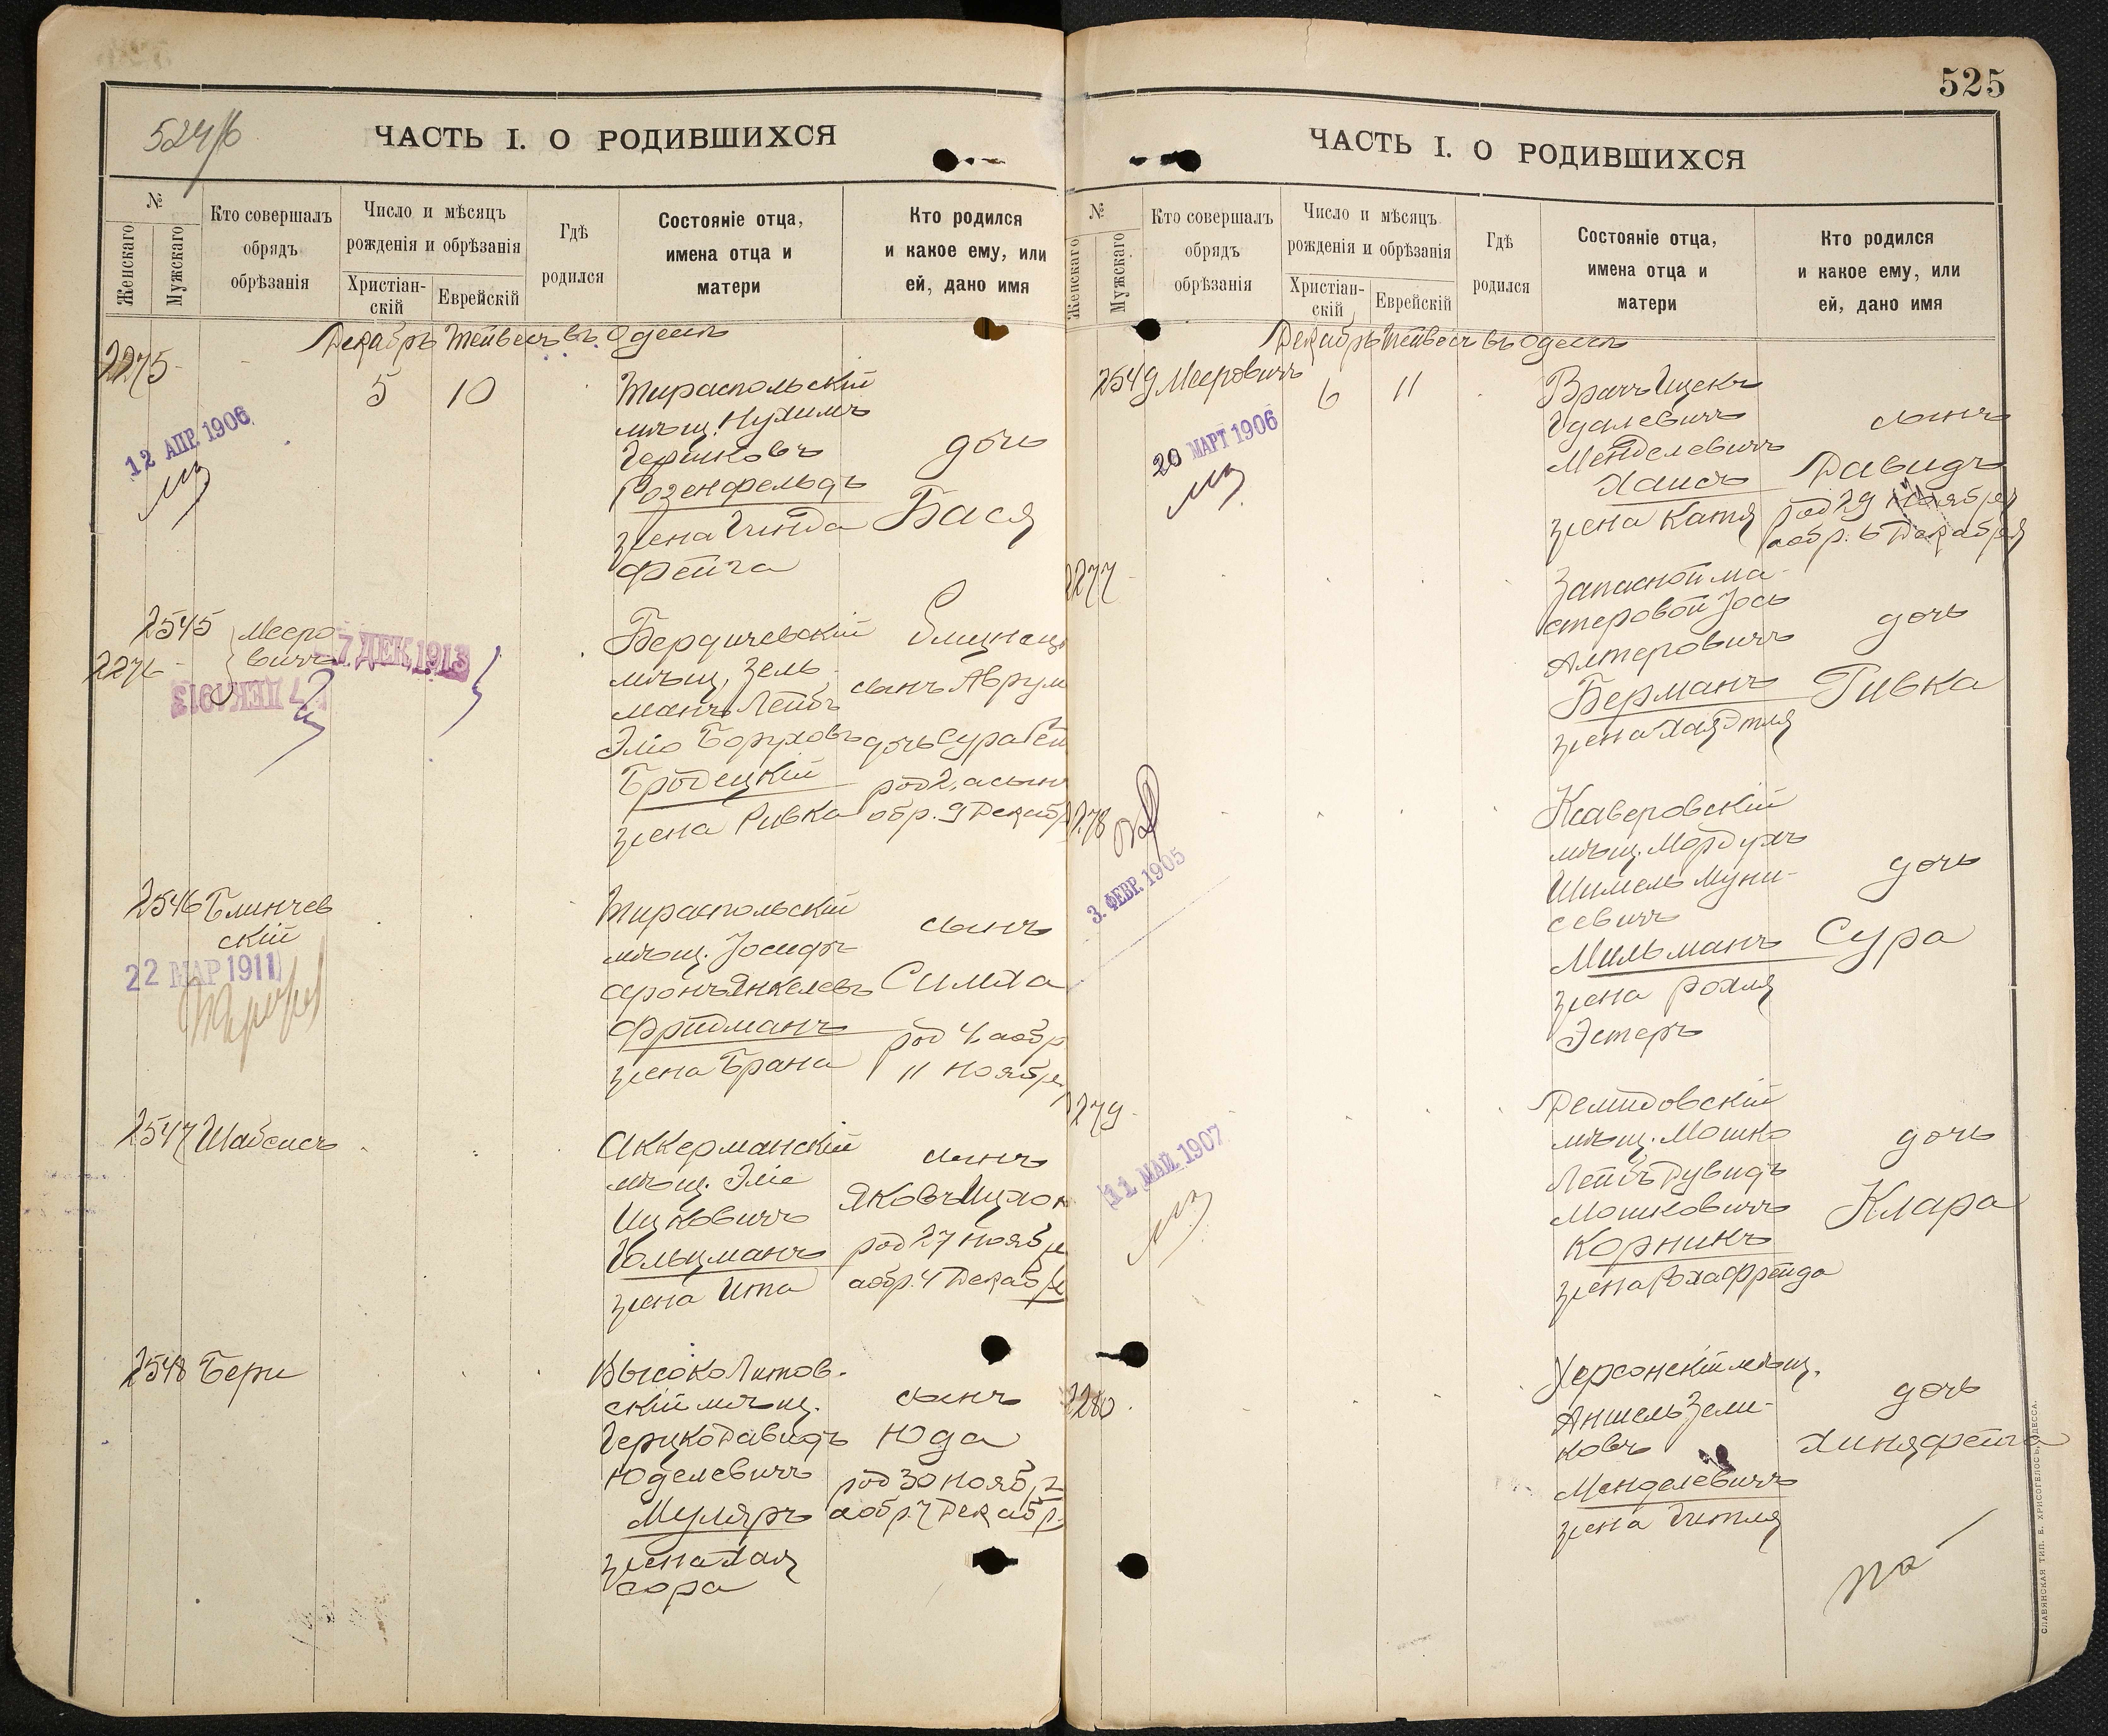 524/б
ЧАСТЬ I. О РОДИВШИХСЯ
№
Женскаго
Мужскаго
Кто совершалъ
обрядъ
обрѣзанія
Число и мѣсяцъ
рожденія и обрѣзанія
Христіан-
скій
Еврейскій
Гдѣ
родился
Состояніе отца,
имена отца и
матери
Кто родился
и какое ему, или
ей, дано имя
Декабрь Тейвесъ въ Одессѣ
2275
5
10
12 АПР. 1906
Тираспольскій
мѣщ. Нухимъ
Гершковъ
Розенфельдъ
жена Гинда
Фейга
дочь
Бася
2545
2276
Мееро
вичъ
7 ДЕК. 1913
7 ДЕК 1913
Бердичевскій
мѣщ. Зель
манъ Лейбъ
Эліо Боруховъ
Бродецкій
жена Ривка
Близнецы
сынъ Аврум
дочь Сура Бей
род 2, а сынъ
обр. 9 Декабр
2546
Блинчев
скій
22 МАР 1911
Тираспольскій
мѣщ. Іосифъ
Аронъ Янкелевъ
Фридманъ
жена Брана
сынъ
Симха
род 4, а обр
11 Ноября
2547
Шабсисъ
Аккерманскій
мѣщ. Эліе
Ицковичъ
Гольцманъ
жена Ита
сынъ
Яковъ Ицхок
род 27 Ноября
а обр. 4 Декабря
2548
Бери
Высоколитов-
скій мѣщ.
Герцко Давидъ
Юделевичъ
Муляръ
жена Хая
Сора
сынъ
Юда
род 30 Ноября
а обр. 7 Декабр.
525
ЧАСТЬ I. О РОДИВШИХСЯ
№
Женскаго
Мужскаго
Кто совершалъ
обрядъ
обрѣзанія
Число и мѣсяцъ
рожденія и обрѣзанія
Христіан-
скій
Еврейскій
Гдѣ
родился
Состояніе отца,
имена отца и
матери
Кто родился
и какое ему, или
ей, дано имя
Декабрь Тейвесъ въ Одессѣ
2549
Мееровичъ
6
11
20 МАРТ 1906
Врачъ Ицекъ
Гдалевичъ
Менделевичъ
Хаисъ
жена Катя
сынъ
Давидъ
род 29 Ноября
а обр. 6 Декабря
2277
Запасной ма-
стеровой Іось
Алтеровичъ
Берманъ
жена Хая Этля
дочь
Ривка
2278
3. ФЕВР. 1905
Ксаверовскій
мѣщ. Мордухъ
Шимель Муни-
севичъ
Мильманъ
жена Рохля
Эстеръ
дочь
Сура
2279
11 МАЙ. 1907
Демидовскій
мѣщ. Мошко
Лейбъ Дувидъ
Мошковичъ
Корникъ
жена Роха Фрейда
дочь
Клара
2280
Херсонскій мѣщ.
Аншель Зели-
ковъ
Менделевичъ
жена Гитля
дочь
Хиня Фейга
СЛАВЯНСКАЯ ТИП. Е. ХРИСОГЕЛОСЪ, ОДЕССА.